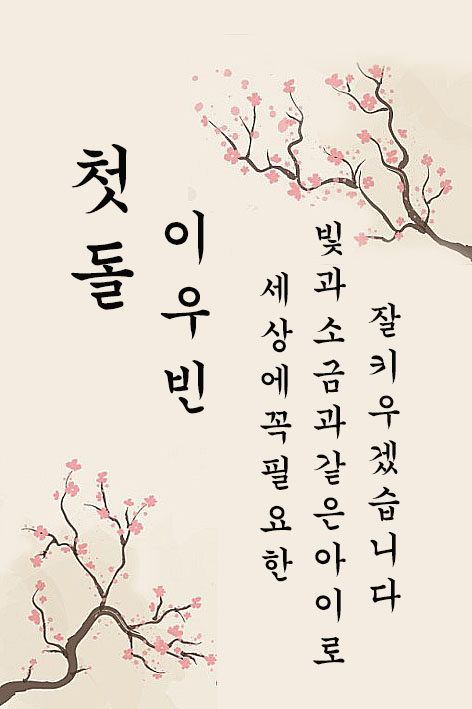 첫돌
이우빈
세상에꼭필요한
빛과소금과같은아이로
잘키우겠습니다